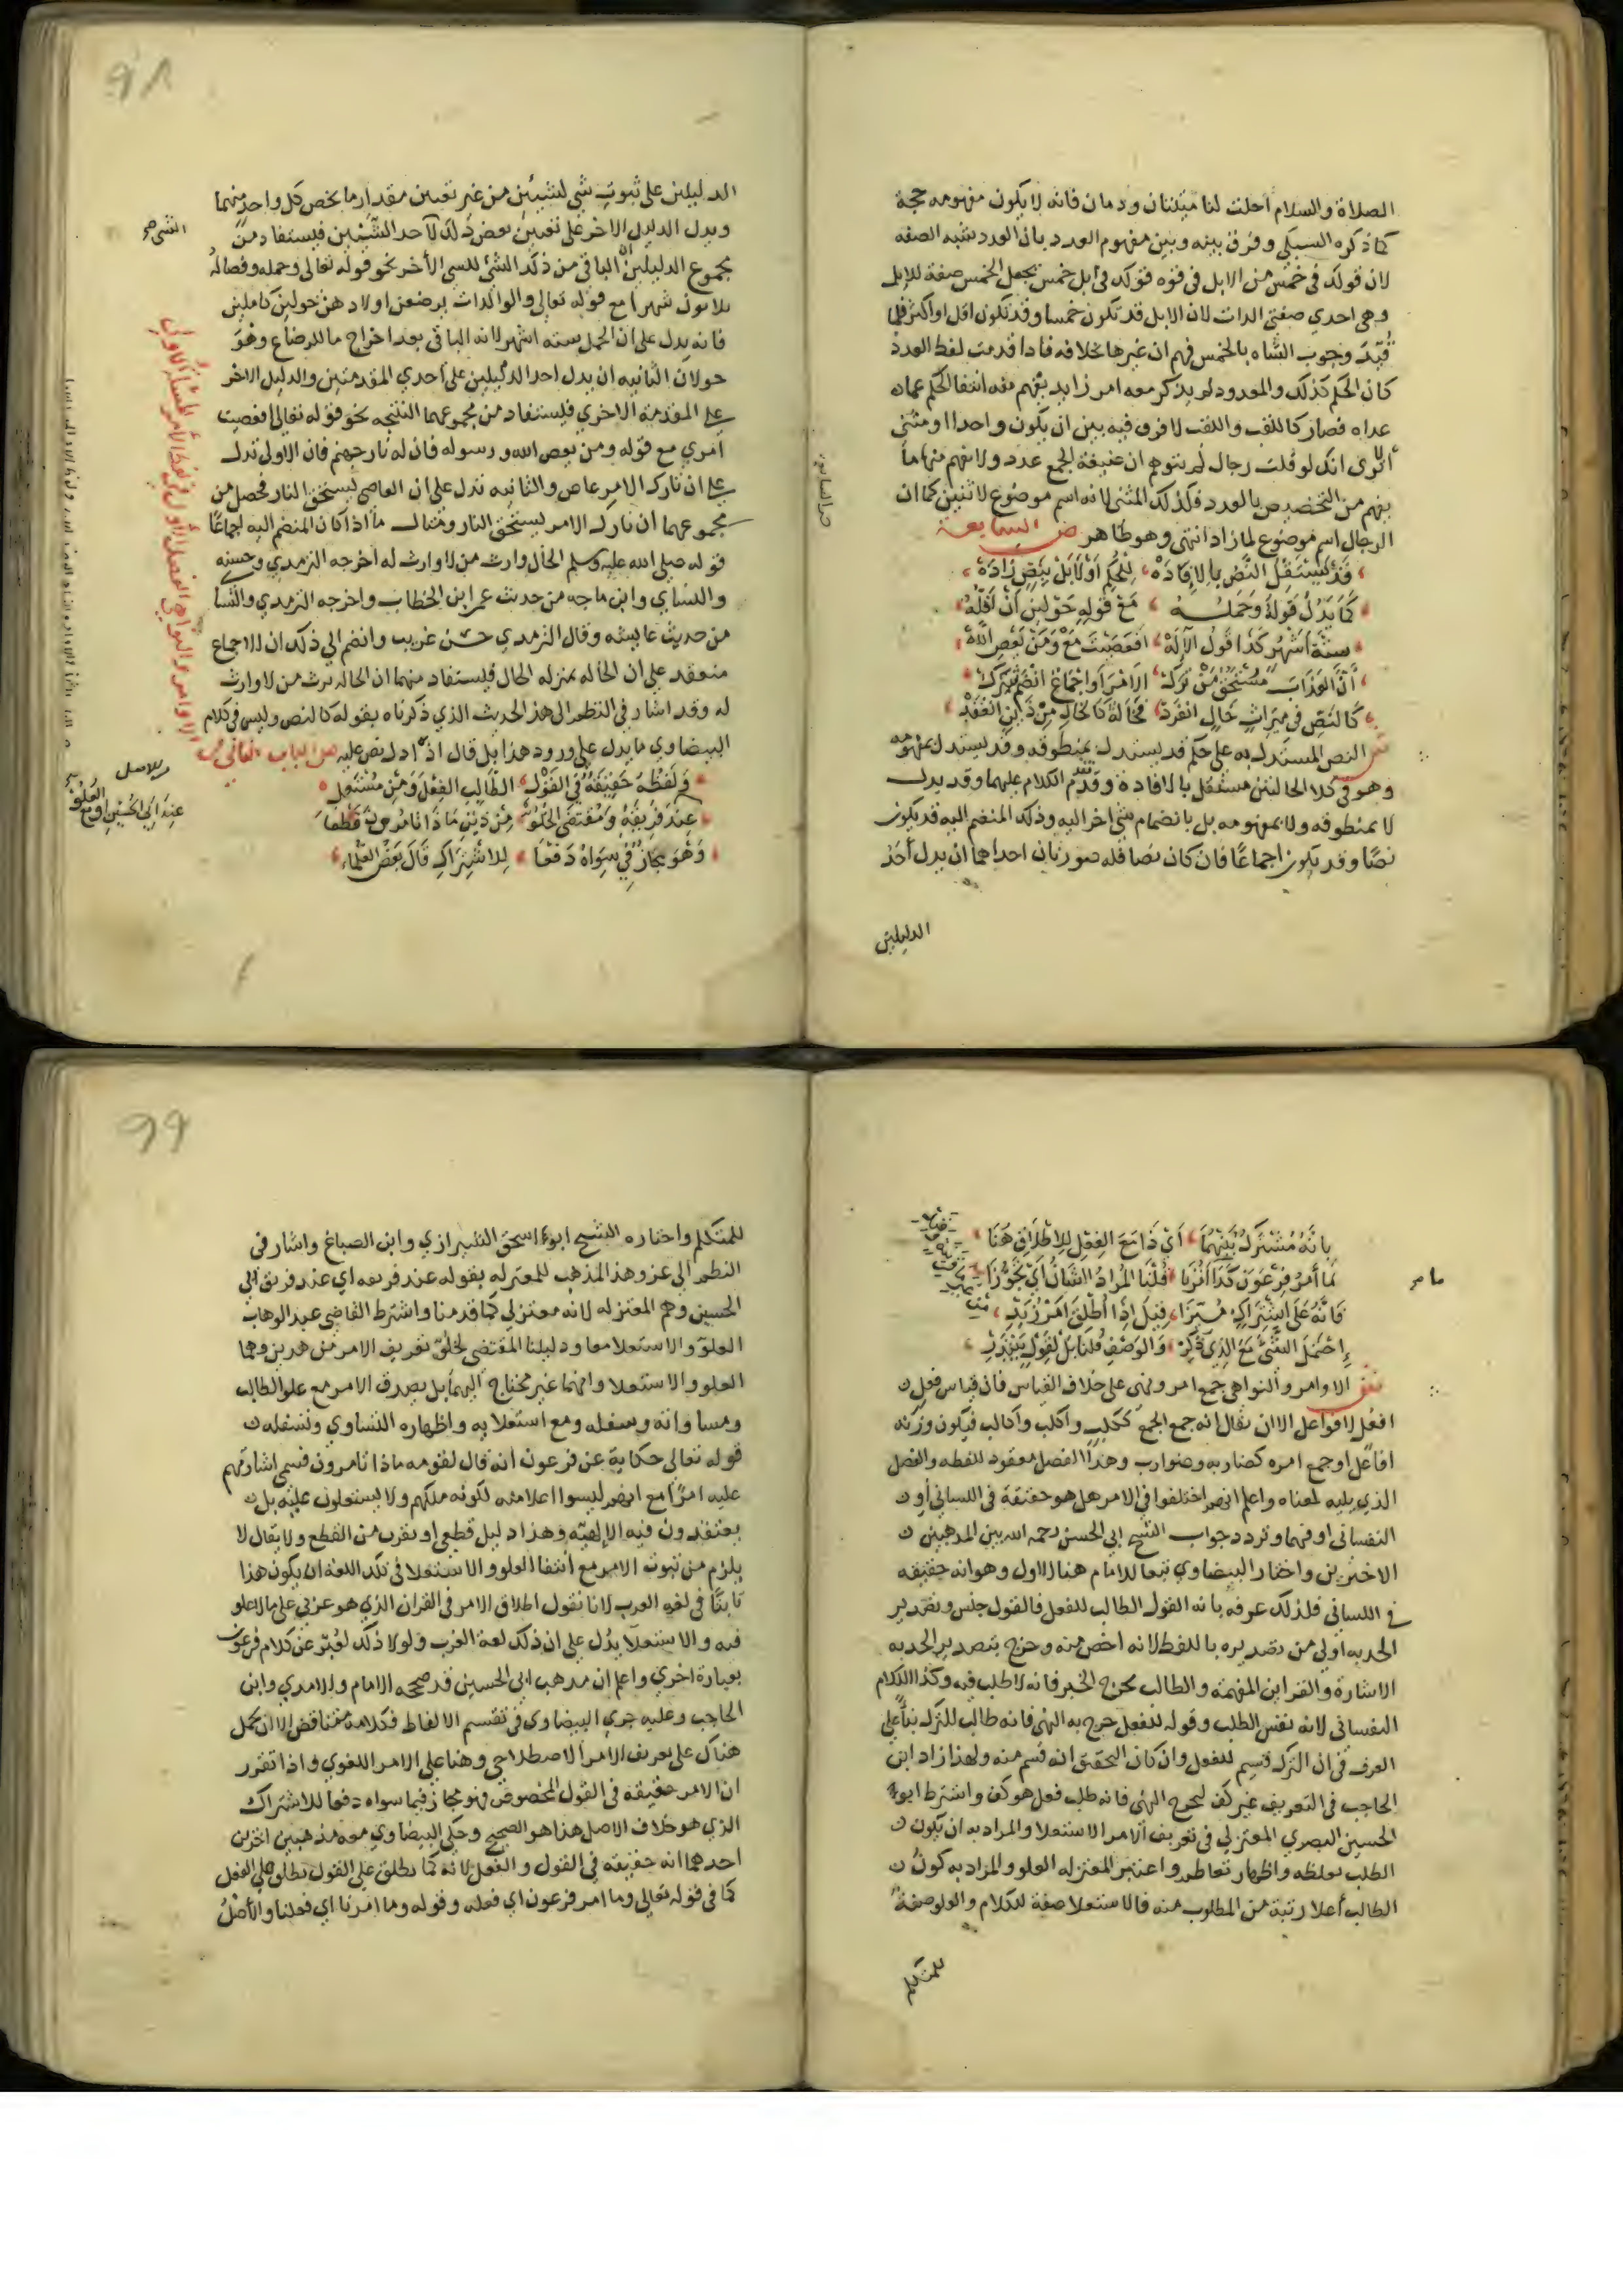 الصلاة والسلام أحلت لنا ميتتان ودمان فانه لا يكون مفهومه حجة
كما ذكره السبكي وفرق بينه وبين مفهوم العدد بان العدد شبه الصفه
لان قولك في خمس من الابل في قوه قولك في ابل خمس بجعل الخمس صفة للابل
وهي احدي صفتي الذات لان الابل قد تكون خمسا وقد تكون اقل او اكثر فلما
قيدت وجوب الشاه بالخمس فهم ان غيرها بخلافه فاذا قدمت لفظ العدد
كان الحكم كذلك والمعدود لم يذكر معه امر زايد يفهم منه انتفا الحكم عما
عداه فصار كاللقب واللقب لا فرق فيه بين ان يكون واحدا او مثني
ألا تري انك لو قلت رجال لم يتوهم ان صيغة الجمع عدد ولا يفهم منها ما
يفهم من التخصيص بالعدد فكذلك المثني لانه اسم موضوع لاثنين كما ان
الرجال اسم موضوع لما زاد انتهي وهو ظاهر ص السابعة
قد يستقل النص بالافاده للحكم أولا بل بنص زاده
كما يدل قوله وحمله مع قوله حولين أن أقله
ستة أشهر كذا قول الاله افعصيت مع ومن يعص الله
أن العذاب مستحق من ترك الامر أو اجماع انضم
كالنص في ميراث خال انفرد فخالة كالخال من ذين انعقد
ش النص المستدل به علي حكم قد يستدل بمنطوقه وقد يستدل بمفهومه
وهو في كلا الحالتين مستقل بالافادة وقد تقدم الكلام عليهما وقد يدل
لا بمنطوقه ولا بمفهومه بل بانضمام شي اخر اليه وذلك المنضم اليه قد يكون
نصا وقد يكون اجماعا فان كان نصا فله صورتان احداهما ان يدل أحد
الدليلين
٩٨
الدليلين علي ثبوت شي لشيئين من غير تعيين مقدار ما يخص كل واحد منهما
ويدل الدليل الاخر علي تعيين بعض ذلك لأحد الشيئين فيستفاد من
مجموع الدليلين أن الباقي من ذلك الشئ للشي الأخر نحو قوله تعالي وحمله وفصاله
ثلاثون شهرا مع قوله تعالي والوالدات يرضعن اولادهن حولين كاملين
فانه يدل علي ان الحمل ستة اشهر لانه الباقي بعد اخراج ما للرضاع وهو
حولان الثانيه ان يدل احد الدليلين علي احدي المقدمتين والدليل الاخر
علي المقدمة الاخري فيستفاد من مجموعهما النتيجه نحو قوله تعالي افعصيت
امري مع قوله ومن يعص الله ورسوله فان له نار جهنم فان الاولي تدل
علي ان تارك الامر عاص والثانيه تدل علي ان العاصي يستحق النار فحصل من
مجموعهما ان تارك الامر يستحق النار ومثال ما اذا كان المنضم اليه اجماعا
قوله صلي الله عليه وسلم الخال وارث من لا وارث له اخرجه الترمذي وحسنه
والنساي وابن ماجه من حديث عمر ابن الخطاب واخرجه الترمذي والنسا
من حديث عايشه وقال الترمذي حسن غريب وانضم الي ذلك ان الاجماع
منعقد علي ان الخاله بمنزله الخال فيستفاد منهما ان الخاله ترث من لا وارث
له وقد اشار في النظم الي هذا الحديث الذي ذكرناه بقوله كالنص وليس في كلام
البيضاوي ما يدل علي ورود هذا بل قال اذا دل نص عليه ص الباب الثاني في
الاوامر والنواهي الفصل الأول في لفظ الأمر المسألة الأولي
ولفظه حقيقة في القول الطالب الفعل ومن مستعل
عند فريقه ومقتضي العلو من ذين ماذا تامرون قطعا
وهو مجاز في سواه دفعا للاشتراك قال بعض العلماء
٩٩
بانه مشترك بينهما أي ذا مع الفعل للاطلاق هنا
ما أمر فرعون كذا أمرنا قلنا المراد الشان أي تجوزا
فانه علي اشتراك ميزا قيل اذا أطلق امر زيد
احتمل الشئ مع الذي ذكر والوصف قلنا بل لقول يبتدر
ش الاوامر والنواهي جمع امر ونهي علي خلاف القياس فان قياس فعل
افعل لا فواعل الا ان يقال انه جمع الجمع ككلب وأكلب وأكالب فيكون وزنه
افاعل او جمع امره كضاربه وضوارب وهذا الفصل معقود للفظه والفصل
الذي يليه لمعناه واعلم انهم اختلفوا في الامر هل هو حقيقة في اللساني أو
النفساني او فيهما وتردد جواب الشيخ ابي الحسن رحمه الله بين المذهبين
الاخيرين واختار البيضاوي تبعا للامام هنا الاول وهو انه حقيقه
في اللساني فلذلك عرفه بانه القول الطالب للفعل فالقول جنس وتصدير
الحد به اولي من تصديره باللفظ لانه اخص منه وخرج بتصدير الحد به
الاشارة والقراين المفهمة والطالب يخرج الخبر فانه لا طلب فيه وكذا الكلام
النفساني لانه نفس الطلب وقوله للفعل خرج به النهي فانه طالب للترك بنا علي
العرف في ان الترك قسيم للفعل وان كان التحقيق انه قسم منه ولهذا زاد ابن
الحاجب في التعريف غير كف ليخرج النهي فانه طلب فعل هو كف واشترط ابو
الحسين البصري المعتزلي في تعريف الامر الاستعلا والمراد به ان يكون
الطلب بغلظه واظهار تعاظم واعتبر المعتزله العلو والمراد به كون
الطالب أعلا رتبة من المطلوب منه فالاستعلا صفة للكلام والعلو صفة
للمتكلم
للمتكلم واختاره الشيخ ابو اسحق الشيرازي وابن الصباغ واشار في
النظم الي عزو هذا المذهب للمعتزله بقوله عند فريقه اي عند فريق ابي
الحسين وهم المعتزله لانه معتزلي كما قدمنا واشترط القاضي عبد الوهاب
العلو والاستعلا معا ودليلنا المقتضي لخلو تعريف الامر من هذين وهما
العلو والاستعلا وانهما غير محتاج اليهما بل يصدق الامر مع علو الطالب
ومساواته وسفله ومع استعلايه واظهاره التساوي وتسفله
قوله تعالي حكاية عن فرعون أنه قال لقومه ماذا تامرون فسمي اشارتهم
عليه امرا مع انهم ليسوا اعلا منه لكونه ملكهم ولا يستعلون عليه بل
يعتقدون فيه الإلهيه وهذا دليل قطعي او يقرب من القطع ولا يقال لا
يلزم من ثبوت الامر مع انتفا العلو والاستعلا في تلك اللغة ان يكون هذا
ثابتا في لغه العرب لانا نقول اطلاق الامر في القران الذي هو عربي علي ما لا علو
فيه والاستعلا يدل علي ان ذلك لغة العرب ولولا ذلك لعبر عن كلام فرعون
بعبارة اخري واعلم ان مذهب ابي الحسين قد صححه الامام والامدي وابن
الحاجب وعليه جري البيضاوي في تقسيم الالفاظ فكلامه متناقض الا ان يحمل
هناك علي تعريف الامر الاصطلاحي وهنا علي الامر اللغوي واذا تقرر
ان الامر حقيقه في القول المخصوص فهو مجاز فيما سواه دفعا للاشتراك
الذي هو خلاف الاصل هذا هو الصحيح وحكي البيضاوي معه مذهبين اخرين
احدهما انه حقيقه في القول والفعل لانه كما يطلق علي القول يطلق علي الفعل
كما في قوله تعالي وما امر فرعون اي فعله وقوله وما امرنا اي فعلنا والأصل